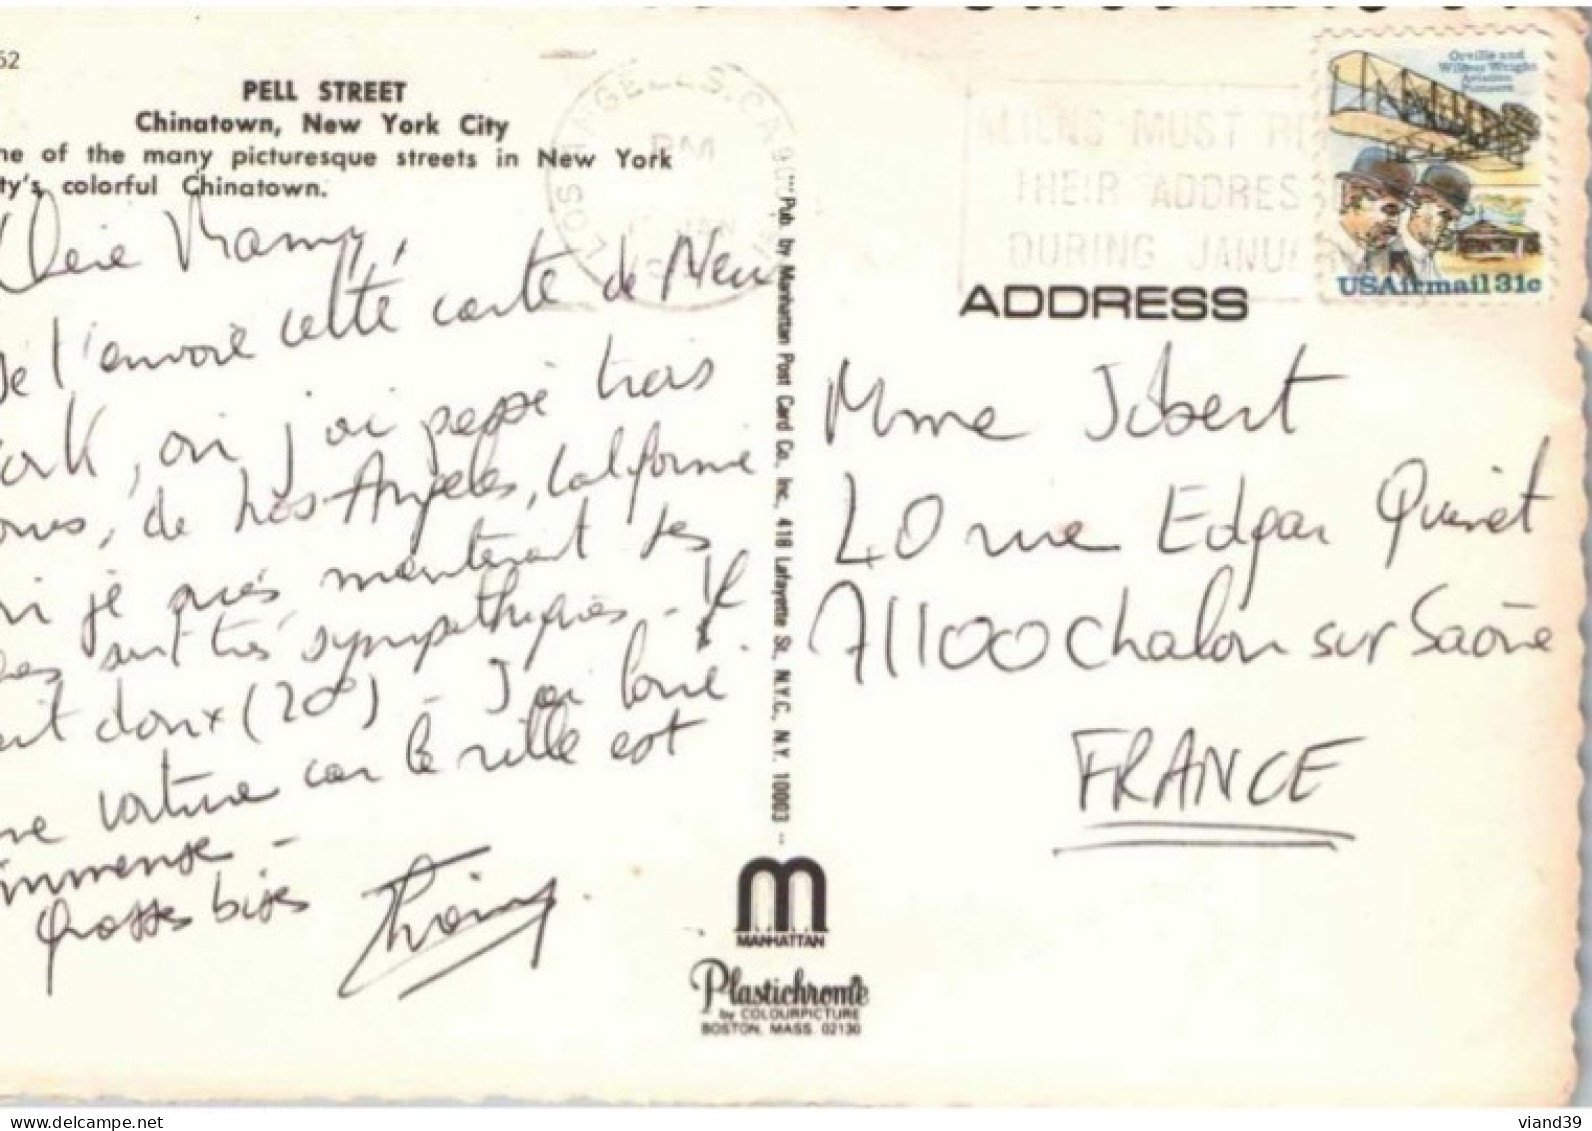 52
PELL STREET
Chinatown, New York City
ne of the many picturesque streets in New York
ty's colorful Chinatown.
LOS ANGELES, CA
PM
JAN
ALIENS MUST RE
THEIR ADDRES
DURING JANU
Orville and
Wilbur Wright
Aviation
Pioneers
USAirmail 31c
ADDRESS
Mamy,
l'envoie cette carte de New
ork, où j'ai passé trois
ours, de Los Angeles, Californie
je suis maintenant Les
sont très sympathiques - Il
ait doux (20°) - J'ai loué
ne voiture car la ville est
immense -
Grosses bises
Mme Jobert
40 rue Edgar Quinet
71100 Chalon sur Saône
FRANCE
Pub. by Manhattan Post Card Co., Inc. 418 Lafayette St., N.Y.C., N.Y. 10003
MANHATTAN
Plastichrome
by COLOURPICTURE
BOSTON, MASS. 02130
www.delcampe.net
viand39